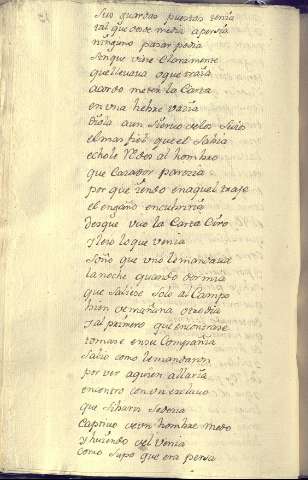 Sus guardas puestas tenia
tal que desde media a persia
ninguno pasar podia
sinque vise claramente
que lleuaua o que traia
acordo meter la Carta
en vna liebre vazia
Diola a un sieruo de los suio
el mas fiel que el sabia
echole Redes al hombro
que Cazador parezia
por que iendo en aquel traje
el engaño encubriria
desque vio la Carta Ciro
y leio lo que venia
soño que vno le mandaua
la noche quando dormia
que saliese solo al Campo
bien de mañana otro dia
y al primero que encontrase
tomase en su Compañia
salio como le mandaron
por ver a quien allaria
encontro con vn esclauo
que sibaris se dezia
Captiuo de vn hombre medo
y huiendo del venia
como supo que era persa